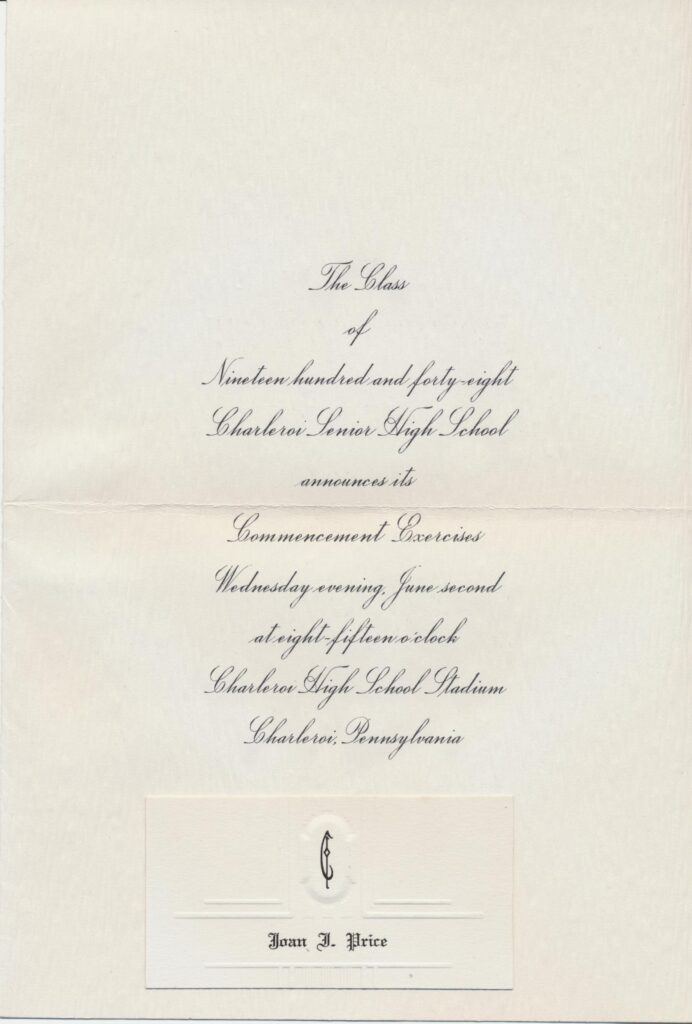 The Class
of
Nineteen hundred and forty-eight
Charleroi Senior High School
announces its
Commencement Exercises
Wednesday evening, June second
at eight-fifteen o'clock
Charleroi High School Stadium
Charleroi, Pennsylvania
Joan I. Price